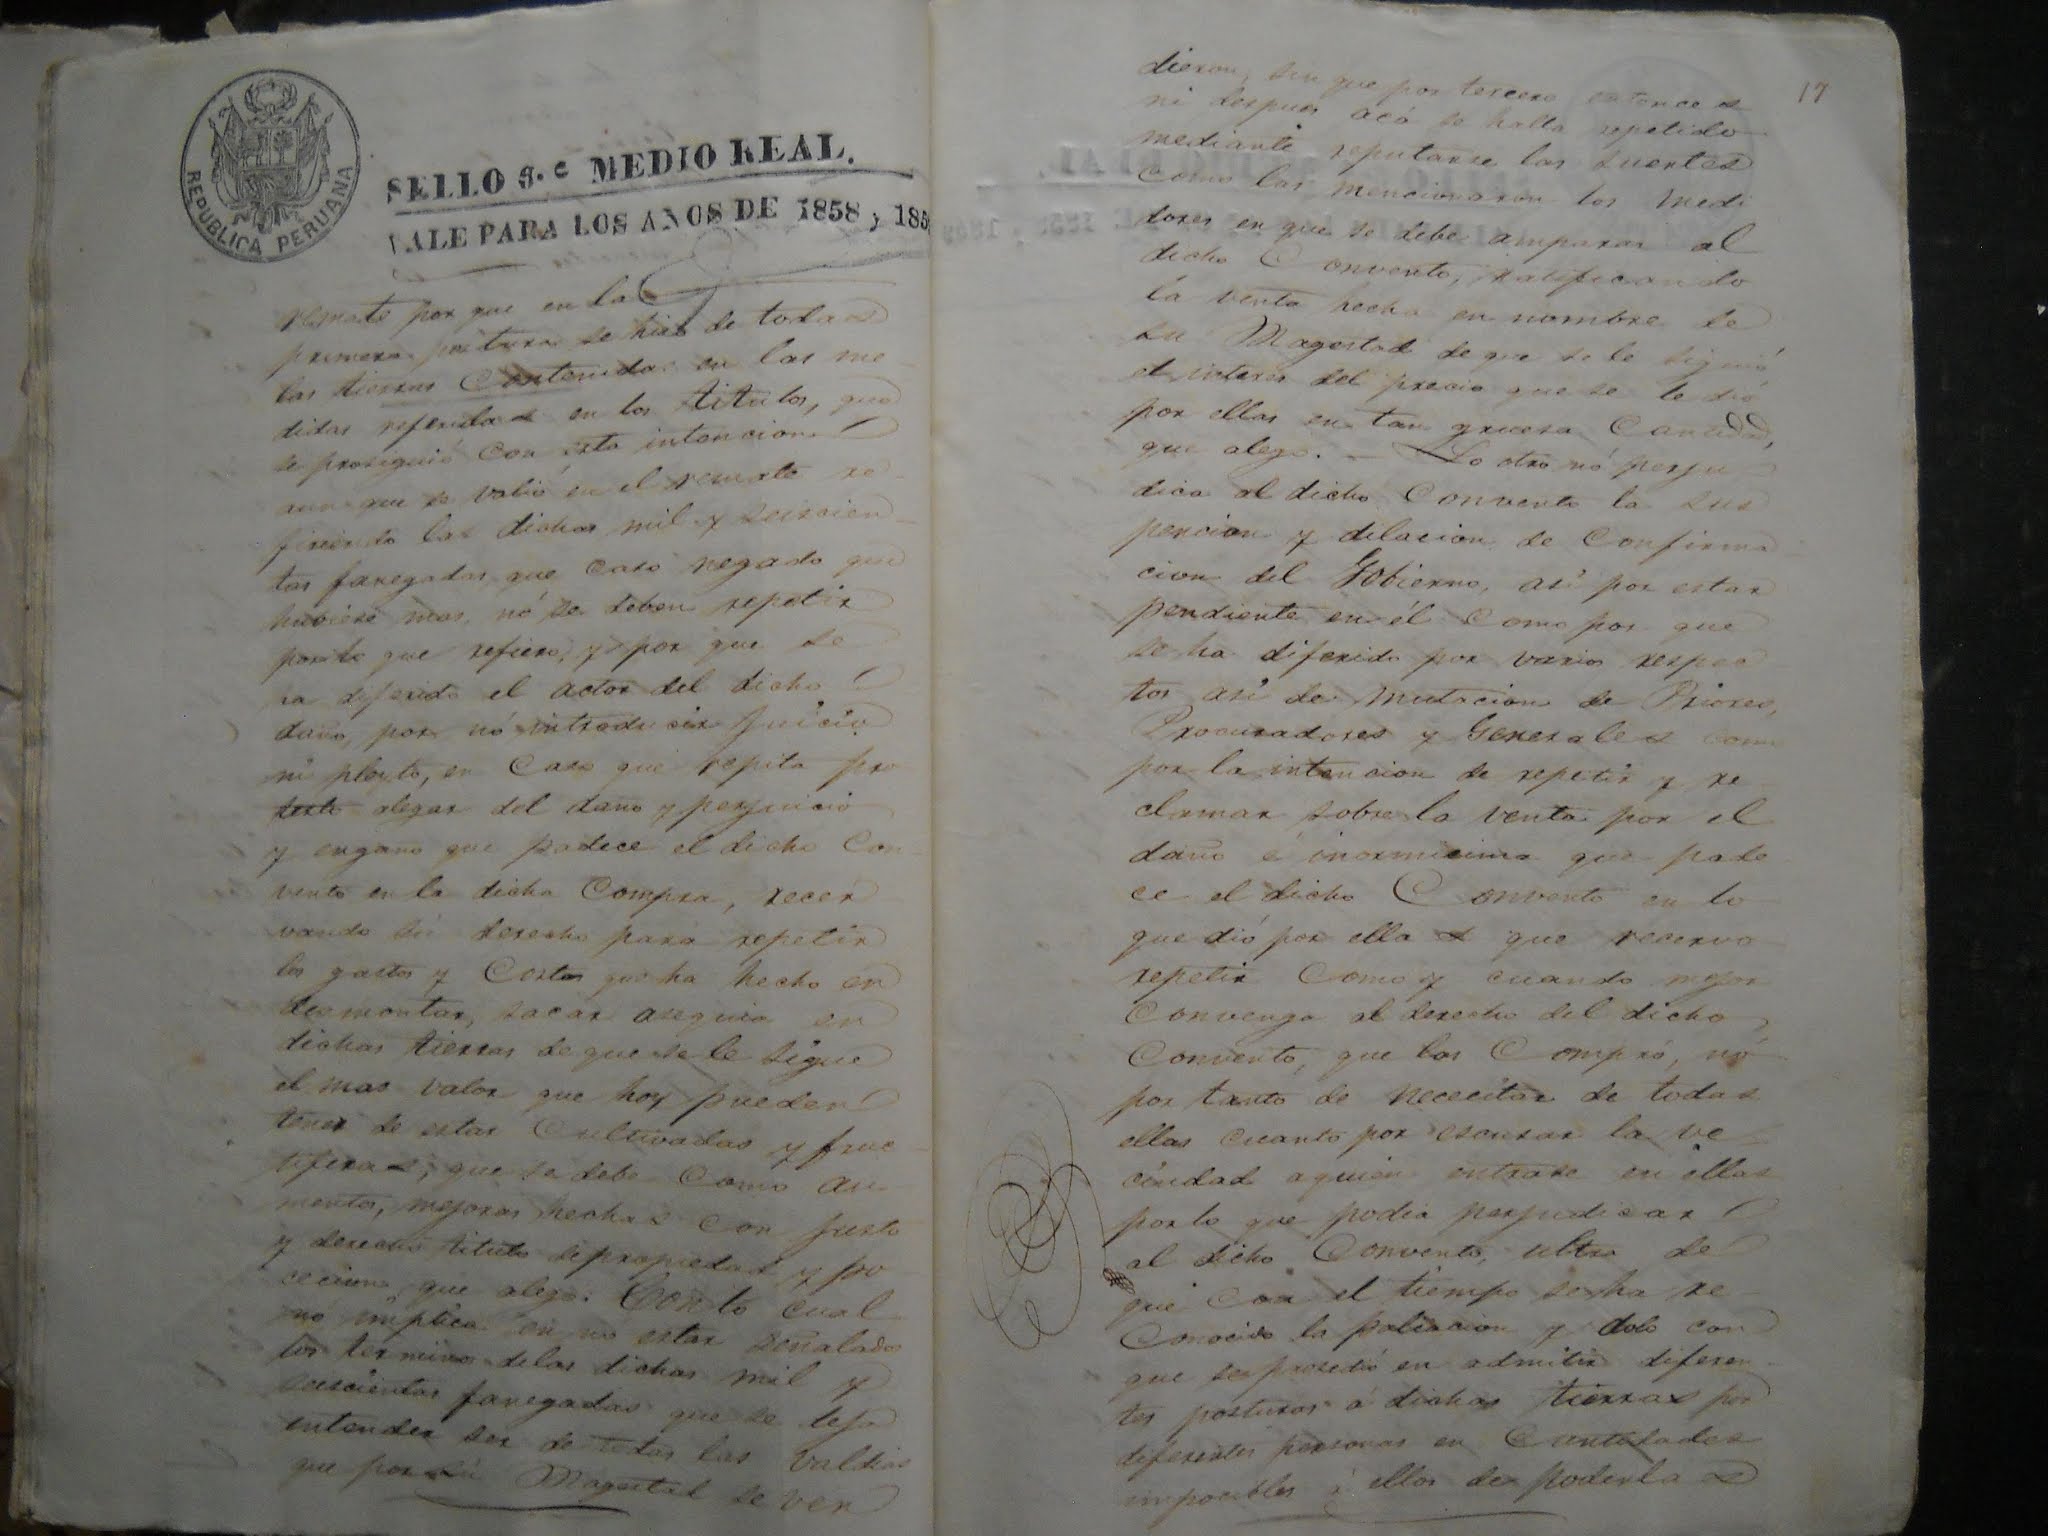 REPUBLICA PERUANA
SELLO 6.º MEDIO REAL.
VALE PARA LOS AÑOS DE 1858 y 185
remate por que en la
primera postura se hizo de todas
las tierras Contenidas en las me
didas referidas en los titulos, que
se prosiguió con esta intencion
aun que se valió en el remate re-
firiendo las dichas mil y seiscien
tas fanegadas, que caso negado que
hubiese mas, nó se deben repetir
por lo que refiero, y por que se
ha diferido el actor del dicho
daño, por nó introducir juicio
ni pleyto, en Caso que repita pro
texto alegar del daño y perjuicio
y engaño que padece el dicho Con
vento en la dicha Compra, recer
vando sú derecho para repetir
los gastos y Costos que ha hecho en
desmontar, sacar asequia en
dichas tierras de que se le sigue
el mas valor que hoy pueden
tener de estar Cultivadas y fruc
tiferas, que se debe Como au
mentos, mejoras hechas con justo
y derecho titulo de propiedad y po
cecion que alego. Con lo cual
no implica en no estar señalados
los terminos de las dichas mil y
seiscientas fanegadas que se deja
entender ser de todas las valdias
que por sú Magestad se ven
17
dieron, sin que por tercero entonces
ni despues acá se halla repetido
mediante reputarse las suertes
como las mencionaron los Medi
dores en que se debe amparar al
dicho Convento, ratificando
la venta hecha en nombre de
su Magestad de que se le siguió
el interes del precio que se le dió
por ellas en tan gruesa Cantidad,
que alego. — Lo otro nó perju
dica al dicho Convento la sus
pencion y dilacion de Confirma
cion del Gobierno, asi por estar
pendiente en él Como por que
se ha diferido por varios respec
tos asi de mutacion de Priores,
Procuradores y Generales como
por la intencion de repetir y re
clamar sobre la venta por el
daño é inormicima que pade
ce el dicho Convento en lo
que dió por ellas que recervo
repetir Como y cuando mejor
Convenga al derecho del dicho
Convento, que las Compró, nó
por tanto de nececitar de todas
ellas cuanto por escusar la ve
cindad a quien entrase en ellas
por lo que podia perjudicar
al dicho Convento, ultra de
que con el tiempo se ha re
Conocido la paliacion y dolo con
que se prosedió en admitir diferen
tes posturas á dichas tierras por
diferentes personas en Cantidades
impocibles á ellos de poderlas